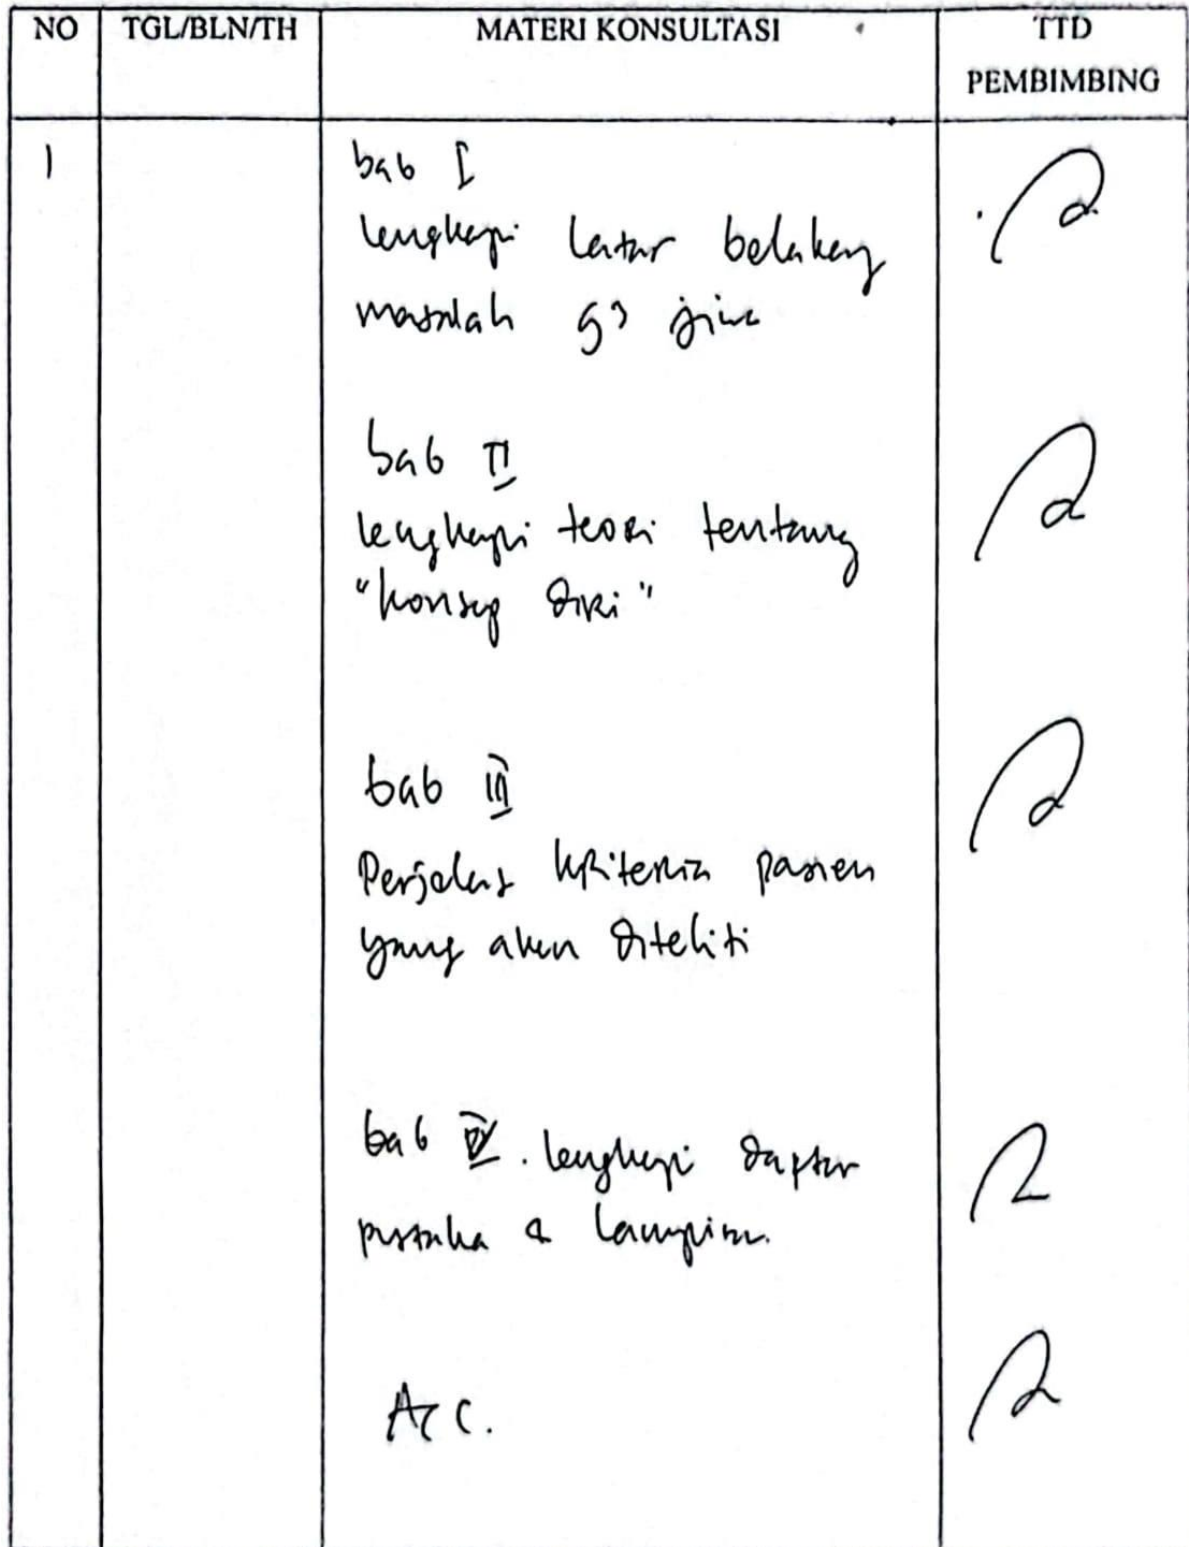 NO TGL/BLN/TH MATERI KONSULTASI TTD
PEMBIMBING
1 bab I
lengkapi latar belakang
masalah g3 jiwa
bab II
lengkapi teori tentang
"konsep diri"
bab III
Perjelas kriteria pasien
yang akan diteliti
bab IV. lengkapi daftar
pustaka & lampiran.
Acc.